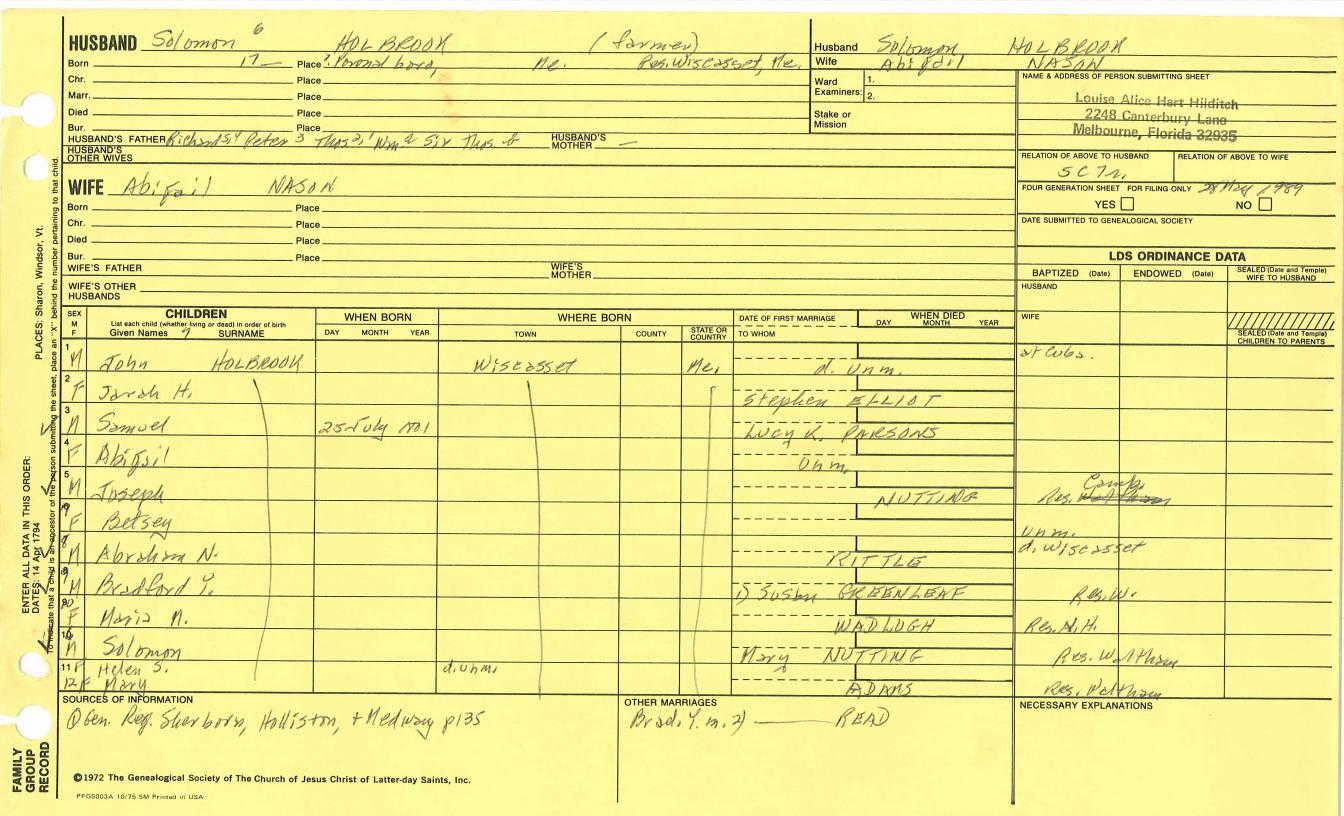 HUSBAND Solomon 6 HOLBROOK (farmer)
Born 17— Place ? , Me. Res. Wiscasset, Me.
Chr. Place
Marr. Place
Died Place
Bur. Place
HUSBAND'S FATHER Richard 5,4 Peter 3 Thos 2,1 Wm & Sir Thos. HUSBAND'S MOTHER —
HUSBAND'S OTHER WIVES
Husband Solomon, HOLBROOK
Wife Abigail NASON
Ward Examiners: 1.
2.
Stake or Mission
NAME & ADDRESS OF PERSON SUBMITTING SHEET
Louise Alice Hart Hilditch
2248 Canterbury Lane
Melbourne, Florida 32935
RELATION OF ABOVE TO HUSBAND RELATION OF ABOVE TO WIFE
5C7r.
FOUR GENERATION SHEET FOR FILING ONLY 28 May 1989
YES NO
DATE SUBMITTED TO GENEALOGICAL SOCIETY
WIFE Abigail NASON
Born Place
Chr. Place
Died Place
Bur. Place
WIFE'S FATHER WIFE'S MOTHER
WIFE'S OTHER HUSBANDS
LDS ORDINANCE DATA
BAPTIZED (Date) ENDOWED (Date) SEALED (Date and Temple) WIFE TO HUSBAND
HUSBAND
WIFE
SEALED (Date and Temple) CHILDREN TO PARENTS
SEX M F
CHILDREN
List each child (whether living or dead) in order of birth
Given Names 7 SURNAME
WHEN BORN
DAY MONTH YEAR
WHERE BORN
TOWN COUNTY STATE OR COUNTRY
DATE OF FIRST MARRIAGE
TO WHOM
WHEN DIED
DAY MONTH YEAR
1 M John HOLBROOK Wiscasset Me. d. unm. at Cuba.
2 F Sarah H. Stephen ELLIOT
3 M Samuel 25 July 1801 Lucy K. PARSONS
4 F Abigail Unm.
5 M Joseph NUTTING Res. Camb.
F Betsey Unm.
8 M Abraham N. KITTLE d. Wiscasset
9 M Bradford Y. 1) Susan GREENLEAF Res. W.
F Maria M. WADLUGH Res. N.H.
10 M Solomon Mary NUTTING Res. Waltham
11 F Helen S. d. unm.
12 F Mary ADAMS Res. Waltham
SOURCES OF INFORMATION
① Gen. Reg. Sherborn, Holliston, + Medway p135
OTHER MARRIAGES
Brad. Y. m. 2) — READ
NECESSARY EXPLANATIONS
©1972 The Genealogical Society of The Church of Jesus Christ of Latter-day Saints, Inc.
PFGS003A 10/75 5M Printed in USA
FAMILY GROUP RECORD
ENTER ALL DATA IN THIS ORDER:
DATES: 14 Apr 1794
PLACES: Sharon, Windsor, Vt.
To indicate that a child is an ancestor of the person submitting the sheet, place an "X" behind the number pertaining to that child.